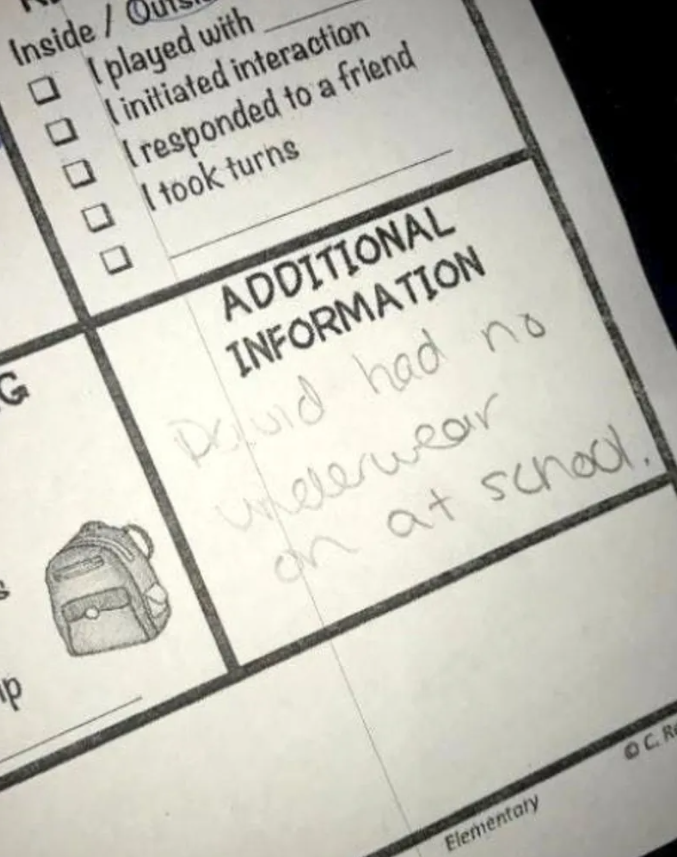 Inside /
I played with
I initiated interaction
I responded to a friend
I took turns
ADDITIONAL
INFORMATION
David had no
underwear
on at school.
G
s
ip
© C.
Elementary